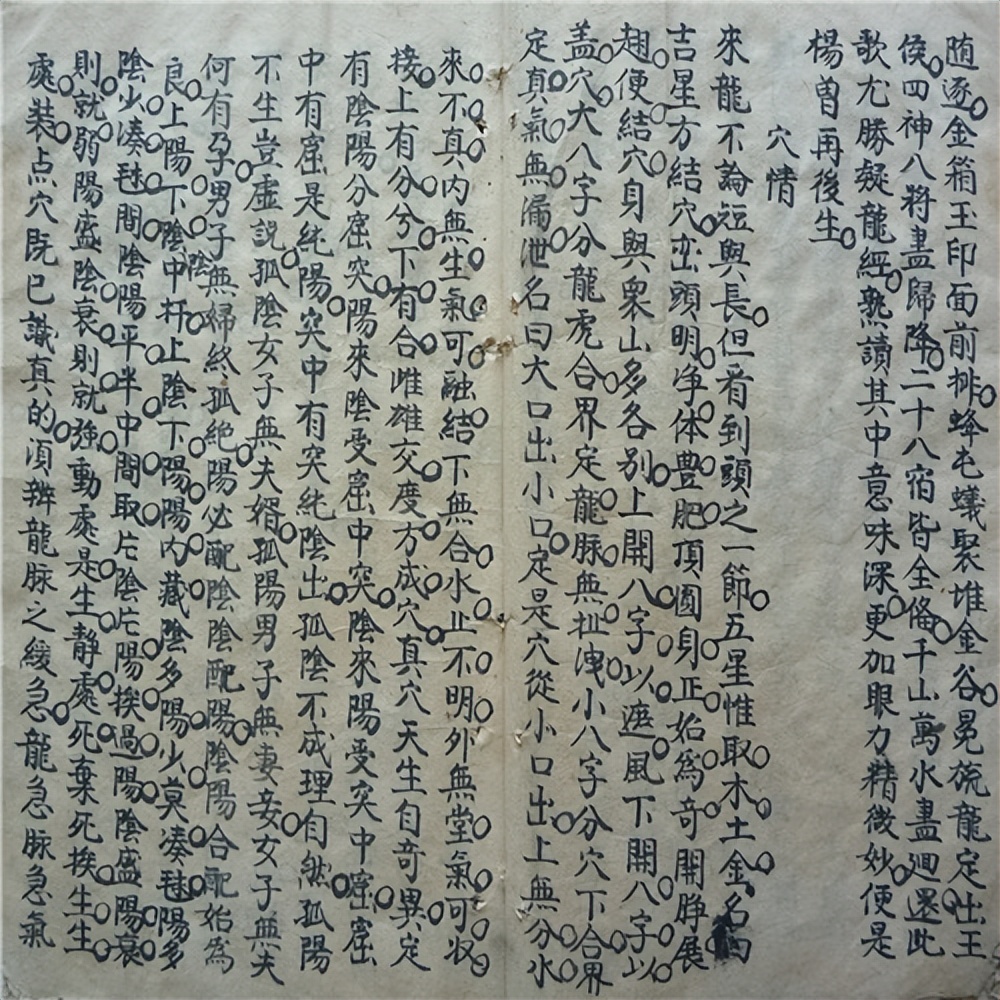 随逐金箱玉印面前排蜂屯蟻聚堆金谷冕旒龍定出王
侯四神八將盡歸降二十八宿皆全俻千山萬水盡迴還此
歌尤勝疑龍經熟讀其中意味深更加眼力精微妙便是
楊曾再後生
穴情
來龍不論短與長但看到頭之一節五星惟取木土金名曰
吉星方結穴峦頭明净体豊肥頂圓身正始為奇開睁展
翅便結穴身與衆山多各别上開八字以遮風下開八字以
盖穴大八字分龍虎合界定龍脉無扯洩小八字分穴下合界
定真氣無漏泄名曰大口出小口定是穴從小口出上無分水
來不真内無生氣可融結下無合水止不明外無堂氣可収
接上有分兮下有合雌雄交度方成穴真穴天生自奇異定
有陰陽分窟突陽來陰受窟中突陰來陽受突中窟窟
中有窟是純陽突中有突純陰出孤陰不成理自然孤陽
不生豈虚説孤陰女子無夫婿孤陽男子無妻妾女子無夫
何有孕男子無婦終孤絶陽必配陰陰配陽陰陽合配始為
良上陽下陰陰中杆上陰下陽陽内藏陰多陽少莫凑毬陽多
陰少凑毬間陰陽平半中間取片陰片陽挨過陽陰盛陽衰
則就弱陽盛陰衰則就強動處是生静處死棄死挨生生
處装点穴既已識真的湏辨龍脉之緩急龍急脉急氣